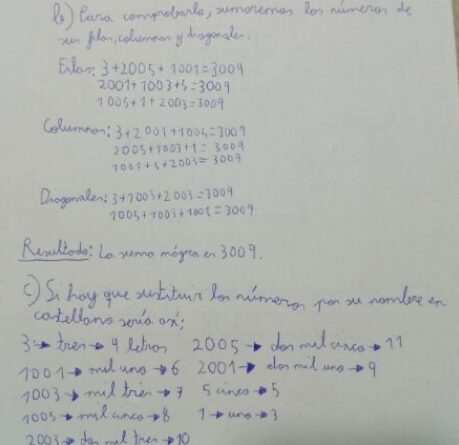 b) Para comprobarlo, sumaremos los números de
sus filas, columnas y diagonales.
Filas: 3+2005+1001=3009
2001+1003+5=3009
1005+1+2003=3009
Columnas: 3+2001+1005=3009
2005+1003+1=3009
1001+5+2003=3009
Diagonales: 3+1003+2003=3009
1005+1003+1001=3009
Resultado: La suma mágica es 3009.
c) Si hay que sustituir los números por su nombre en
castellano sería así:
3→tres→4 letras 2005→dos mil cinco→11
1001→mil uno→6 2001→dos mil uno→9
1003→mil tres→7 5 cinco→5
1005→mil cinco→8 1→uno→3
2003→dos mil tres→10